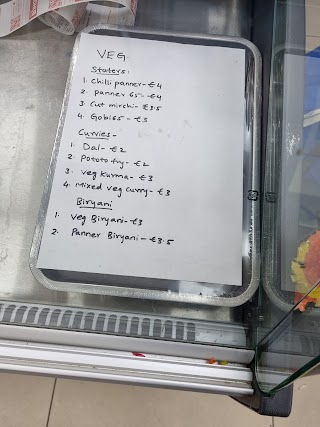 VEG
Staters:
1. Chilli panner - €4
2. Panner 65 - €4
3. Cut mirchi - €3.5
4. Gobi 65 - €3
Curries -
1. Dal - €2
2. Pototo fry - €2
3. Veg Kurma - €3
4. Mixed veg curry - €3
Biryani
1. Veg Biryani - €3
2. Panner Biryani - €3.5